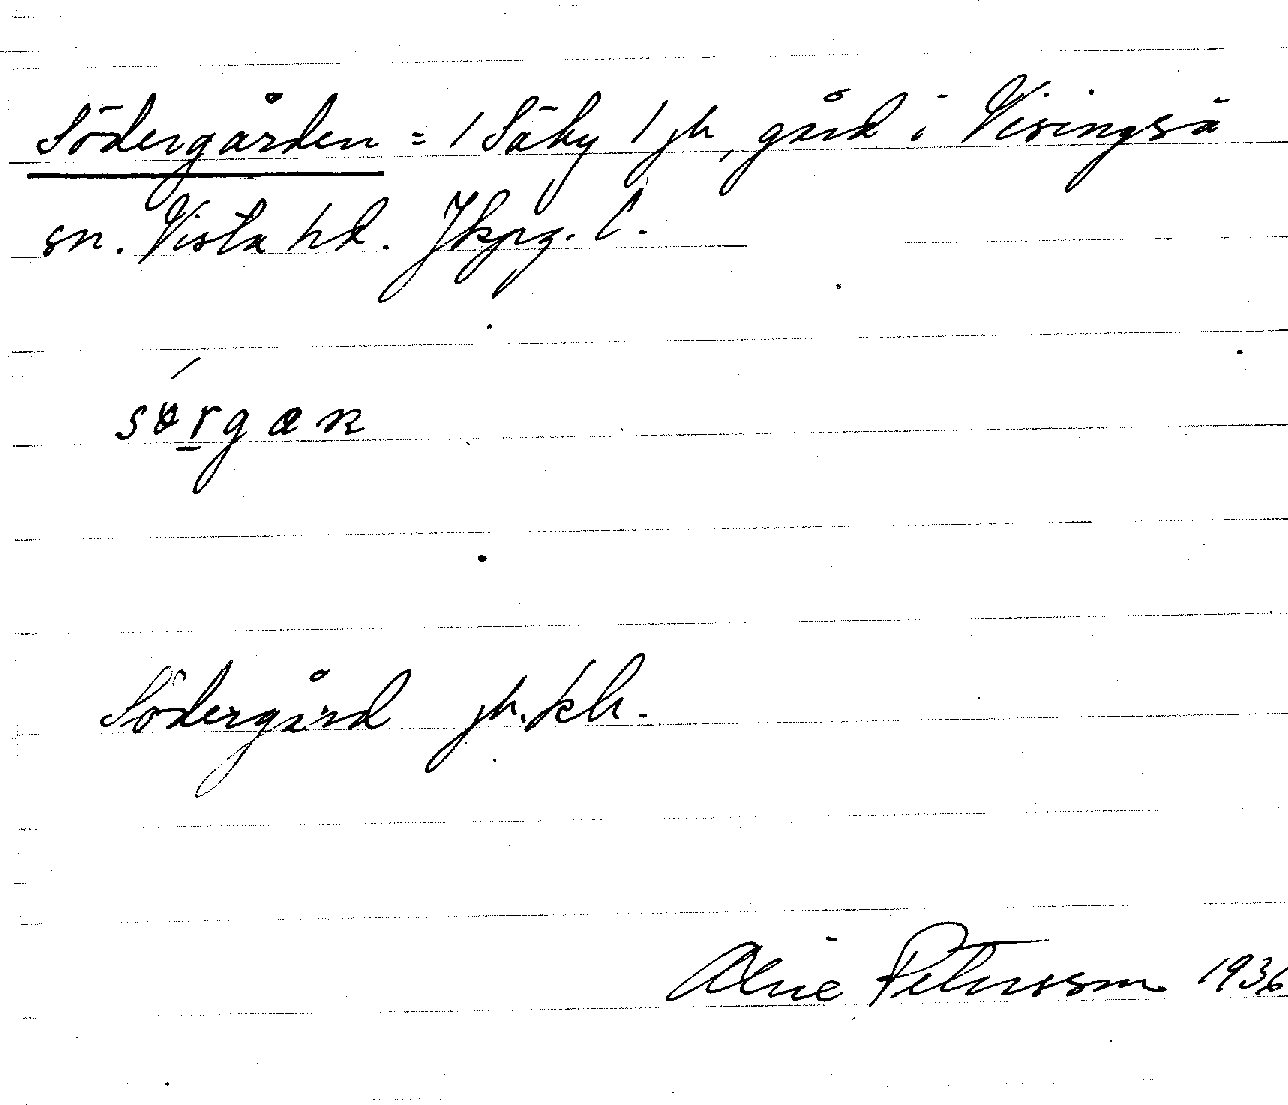 Södergården = 1 Säby 1 jb, gård i Visingsö
sn. Vista hd. Jkpg. l.
sørgan
Södergård jb. kb.
Petersson 1936